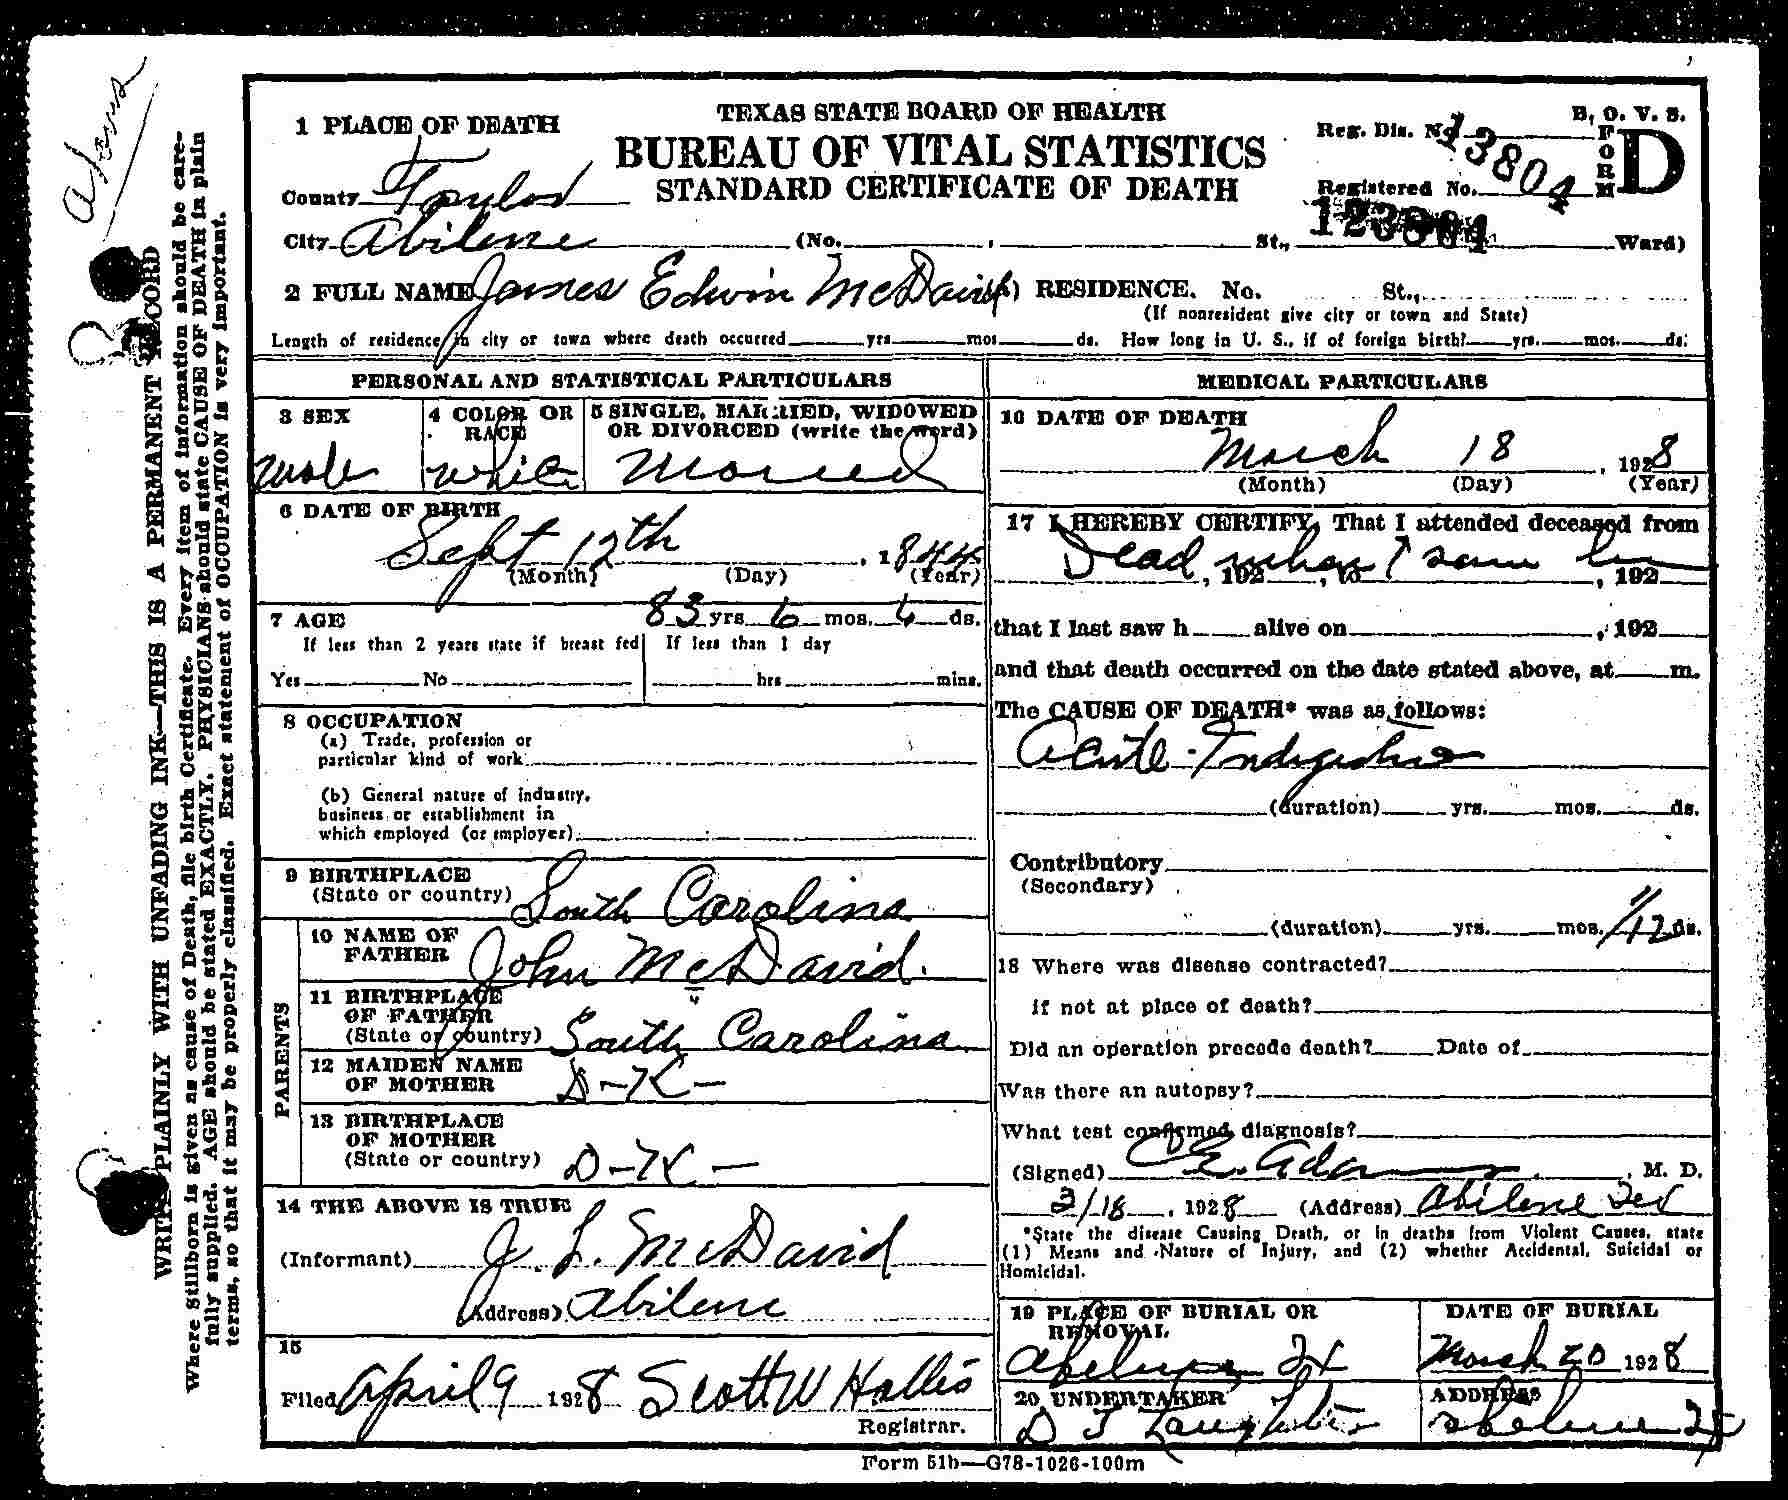 WRITE PLAINLY WITH UNFADING INK—THIS IS A PERMANENT RECORD
Where Stillborn is given as cause of Death, file birth Certificate. Every item of information should be care-
fully supplied. AGE should be stated EXACTLY. PHYSICIANS should state CAUSE OF DEATH in plain
terms, so that it may be properly classified. Exact statement of OCCUPATION is very important.
TEXAS STATE BOARD OF HEALTH
BUREAU OF VITAL STATISTICS
STANDARD CERTIFICATE OF DEATH
B. O. V. S.
FORM D
Reg. Dis. No.
13804
Registered No.
1 PLACE OF DEATH
County Taylor
City Abilene (No. , St., Ward)
2 FULL NAME James Edwin McDavid RESIDENCE. No. St.,
(If nonresident give city or town and State)
Length of residence in city or town where death occurred yrs mos ds. How long in U. S., if of foreign birth? yrs. mos. ds.
PERSONAL AND STATISTICAL PARTICULARS
3 SEX
male
4 COLOR OR RACE
white
5 SINGLE, MARRIED, WIDOWED
OR DIVORCED (write the word)
Married
6 DATE OF BIRTH
Sept 12th , 1844
(Month) (Day) (Year)
7 AGE 83 yrs 6 mos. 6 ds.
If less than 2 years state if breast fed If less than 1 day
Yes No hrs mins.
8 OCCUPATION
(a) Trade, profession or
particular kind of work
(b) General nature of industry,
business or establishment in
which employed (or employer)
9 BIRTHPLACE
(State or country) South Carolina
PARENTS
10 NAME OF
FATHER John McDavid.
11 BIRTHPLACE
OF FATHER
(State or country) South Carolina
12 MAIDEN NAME
OF MOTHER D-K-
13 BIRTHPLACE
OF MOTHER
(State or country) D-K-
14 THE ABOVE IS TRUE
(Informant) J. L. McDavid
(Address) Abilene
15
Filed April 9 1928 Scott W Hollis
Registrar.
MEDICAL PARTICULARS
16 DATE OF DEATH
March 18 , 1928
(Month) (Day) (Year)
17 I HEREBY CERTIFY, That I attended deceased from
Dead when I saw him
, 192 , to , 192
that I last saw h alive on , 192
and that death occurred on the date stated above, at m.
The CAUSE OF DEATH* was as follows:
Acute Indigestion
(duration) yrs. mos. ds.
Contributory
(Secondary)
(duration) yrs. mos. 1/12 ds.
18 Where was disease contracted?
if not at place of death?
Did an operation precede death? Date of
Was there an autopsy?
What test confirmed diagnosis?
(Signed) E. Adams , M. D.
3/18 , 1928 (Address) Abilene Tex
*State the disease Causing Death, or in deaths from Violent Causes, state
(1) Means and Nature of Injury, and (2) whether Accidental, Suicidal or
Homicidal.
19 PLACE OF BURIAL OR
REMOVAL
Abilene, Tx
DATE OF BURIAL
March 20 1928
20 UNDERTAKER
D T Laughter
ADDRESS
Abilene Tx
Form 51b—G78-1026-100m